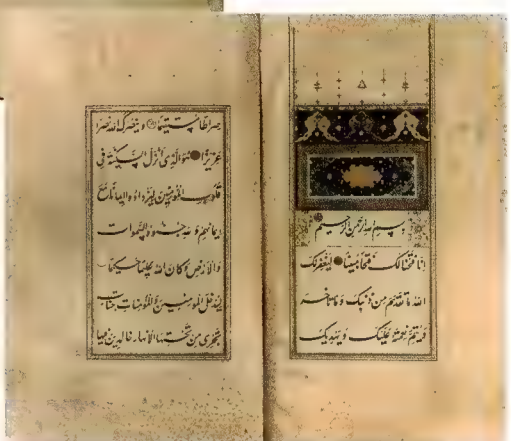 بسم الله الرحمن الرحيم
انا فتحنا لك فتحا مبينا ليغفر لك
الله ما تقدم من ذنبك و ما تاخر
و يتم نعمته عليك و يهديك
صراطا مستقيما و ينصرك الله نصرا
عزيزا هو الذی انزل السكينة فی
قلوب المؤمنين ليزدادوا ايمانا مع
ايمانهم و لله جنود السموات
والارض و كان الله عليما حكيما
ليدخل المؤمنين و المؤمنات جنات
تجری من تحتها الانهار خالدين فيها